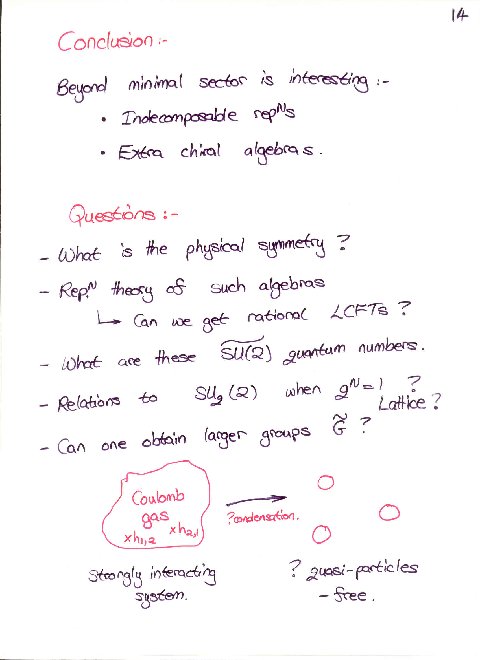 14
Conclusion:-
Beyond minimal sector is interesting:-
• Indecomposable repᴺs
• Extra chiral algebras.
Questions:-
- What is the physical symmetry?
- Repᴺ theory of such algebras
↳ Can we get rational LCFTs?
- What are these S͠U(2) quantum numbers.
- Relations to SU_q(2) when q^N=1 ?
Lattice?
- Can one obtain larger groups G̃ ?
Coulomb
gas
xh₁,₂ xh₂,₁
?condensation.
strongly interacting
system.
? quasi-particles
- free.